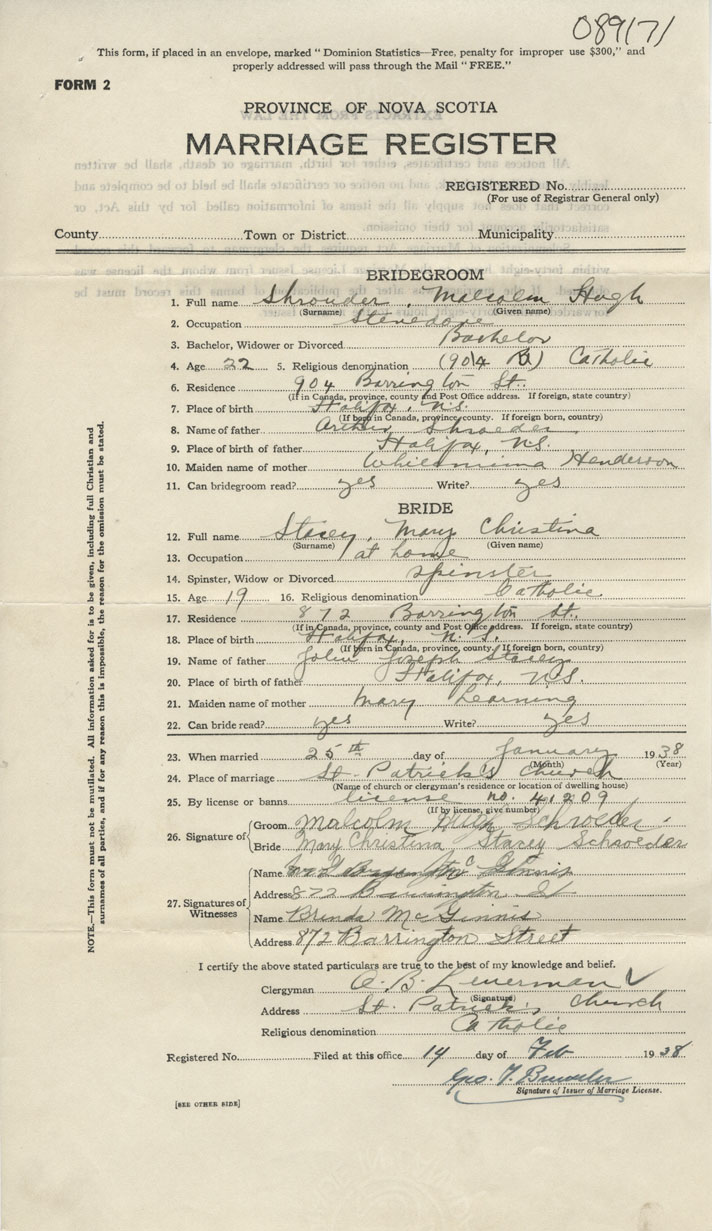 089171
This form, if placed in an envelope, marked " Dominion Statistics—Free, penalty for improper use $300," and
properly addressed will pass through the Mail " FREE."
FORM 2
PROVINCE OF NOVA SCOTIA
MARRIAGE REGISTER
REGISTERED No.
(For use of Registrar General only)
County Town or District Municipality
BRIDEGROOM
1. Full name Shrouder, Malcolm Hugh
(Surname) (Given name)
2. Occupation Stevedore
3. Bachelor, Widower or Divorced Bachelor
4. Age 22 5. Religious denomination (904 Catholic
6. Residence 904 Barrington St.
(If in Canada, province, county and Post Office address. If foreign, state country)
7. Place of birth Halifax, N.S.
(If born in Canada, province, county. If foreign born, country)
8. Name of father Arthur Shroeder
9. Place of birth of father Halifax, N.S.
10. Maiden name of mother Henderson
11. Can bridegroom read? yes Write? yes
BRIDE
12. Full name Stacey, Mary Christina
(Surname) (Given name)
13. Occupation at home
14. Spinster, Widow or Divorced spinster
15. Age 19 16. Religious denomination Catholic
17. Residence 872 Barrington St.
(If in Canada, province, county and Post Office address. If foreign, state country)
18. Place of birth Halifax, N.S.
(If born in Canada, province, county. If foreign born, country)
19. Name of father John Joseph Stacey
20. Place of birth of father Halifax, N.S.
21. Maiden name of mother Mary Learning
22. Can bride read? yes Write? yes
23. When married 25th day of January 1938
(Month) (Year)
24. Place of marriage St. Patrick's Church
(Name of church or clergyman's residence or location of dwelling house)
25. By license or banns license no. 41209
(If by license, give number)
26. Signature of
Groom Malcolm Schroeder
Bride Mary Christina Stacey Schroeder
27. Signatures of Witnesses
Name
Address 872 Barrington St
Name Brenda McGinnis
Address 872 Barrington Street
I certify the above stated particulars are true to the best of my knowledge and belief.
Clergyman
(Signature)
Address St. Patrick's Church
Religious denomination Catholic
Registered No. Filed at this office 14 day of Feb 1938
Geo. F.
Signature of Issuer of Marriage License.
[SEE OTHER SIDE]
NOTE.—This form must not be mutilated. All information asked for is to be given, including full Christian and
surnames of all parties, and if for any reason this is impossible, the reason for the omission must be stated.